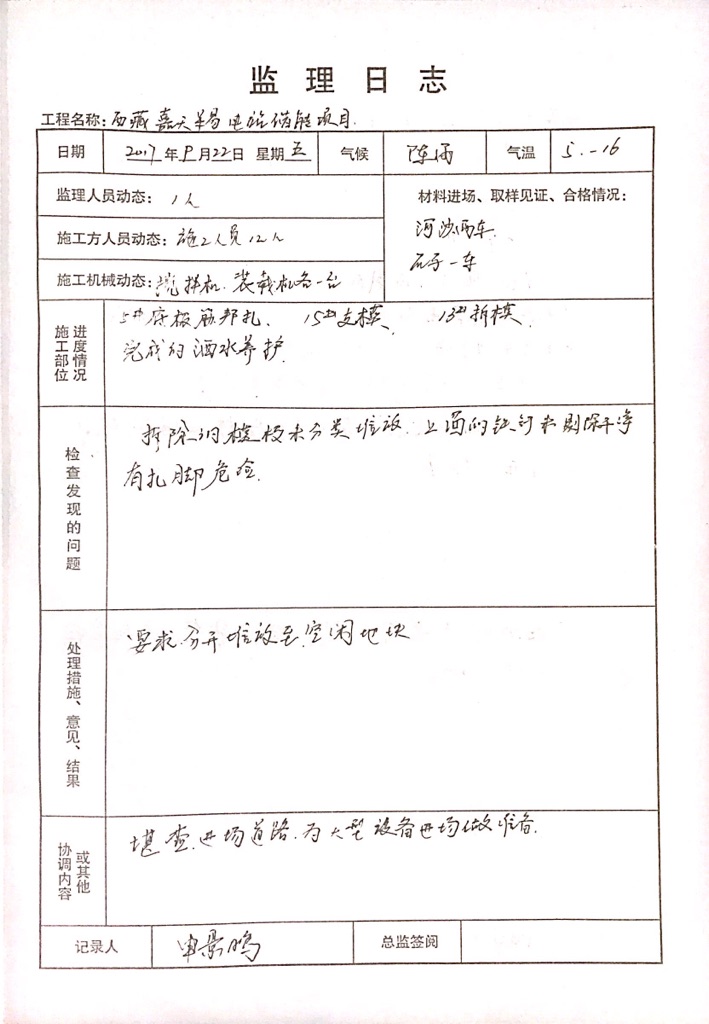 监理日志
工程名称：西藏嘉天羊易电站储能项目
日期 2017年9月22日 星期五 气候 阵雨 气温 5.-16
监理人员动态：1人
施工方人员动态：施工人员12人
施工机械动态：搅拌机、装载机各一台
材料进场、取样见证、合格情况：
河沙两车
石子一车
施工部位进度情况
5#底板筋邦扎、 15#支模、 13#拆模、
完成的洒水养护
检查发现的问题
拆除的模板未分类堆放、上面的铁钉未剔除干净
有扎脚危险
处理措施、意见、结果
要求分开堆放至空闲地块
协调内容或其他
堪查进场道路、为大型设备进场做准备
记录人 申景鸣 总监签阅